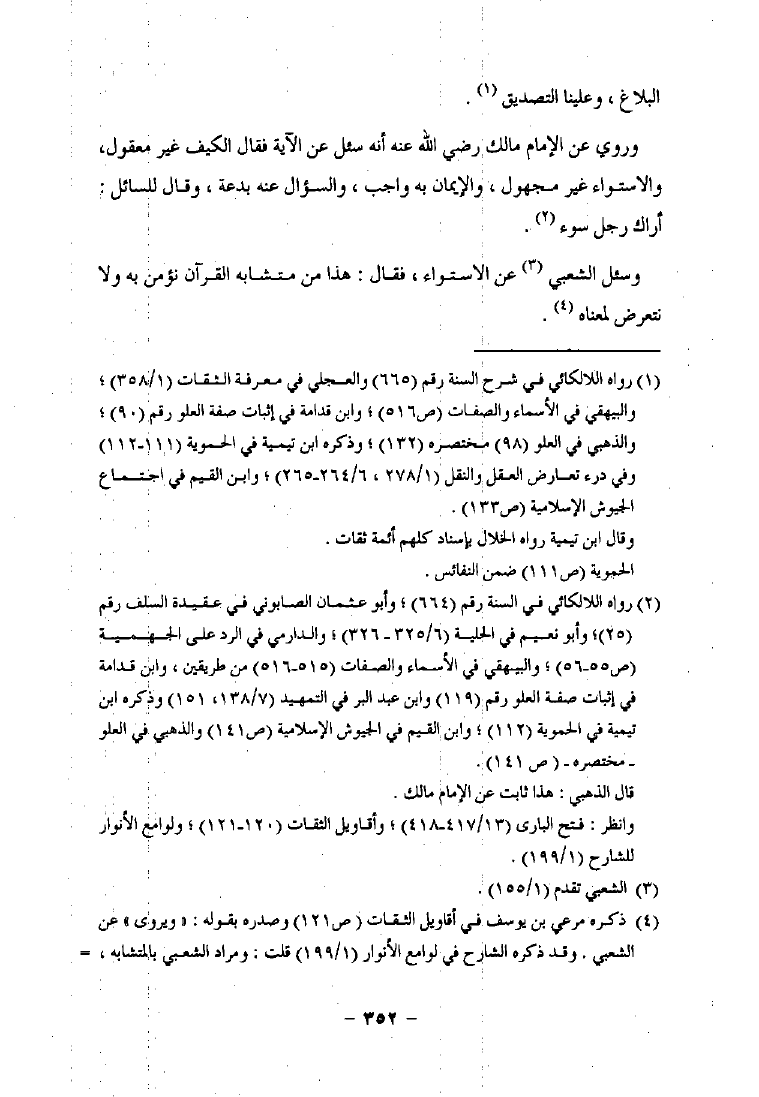 البلاغ ، وعلينا التصديق (١) .
وروي عن الإمام مالك رضي الله عنه أنه سئل عن الآية فقال الكيف غير معقول،
والاستواء غير مجهول ، والإيمان به واجب ، والسؤال عنه بدعة ، وقال للسائل :
أراك رجل سوء (٢) .
وسئل الشعبي (٣) عن الاستواء ، فقال : هذا من متشابه القرآن نؤمن به ولا
نتعرض لمعناه (٤) .
(١) رواه اللالكائي في شرح السنة رقم (٦٦٥) والعجلي في معرفة الثقات (٣٥٨/١) ؛
والبيهقي في الأسماء والصفات (ص٥١٦) ؛ وابن قدامة في إثبات صفة العلو رقم (٩٠) ؛
والذهبي في العلو (٩٨) مختصره (١٣٢) ؛ وذكره ابن تيمية في الحموية (١١١-١١٢)
وفي درء تعارض العقل والنقل (٢٧٨/١ ، ٢٦٤/٦-٢٦٥) ؛ وابن القيم في اجتماع
الجيوش الإسلامية (ص١٣٣) .
وقال ابن تيمية رواه الخلال بإسناد كلهم أئمة ثقات .
الحموية (ص١١١) ضمن النفائس .
(٢) رواه اللالكائي في السنة رقم (٦٦٤) ؛ وأبو عثمان الصابوني في عقيدة السلف رقم
(٢٥)؛ وأبو نعيم في الحلية (٣٢٥/٦ - ٣٢٦) ؛ والدارمي في الرد على الجهمية
(ص٥٥-٥٦) ؛ والبيهقي في الأسماء والصفات (٥١٥-٥١٦) من طريقين ، وابن قدامة
في إثبات صفة العلو رقم (١١٩) وابن عبد البر في التمهيد (١٣٨/٧، ١٥١) وذكره ابن
تيمية في الحموية (١١٢) ؛ وابن القيم في الجيوش الإسلامية (ص١٤١) والذهبي في العلو
ـ مختصره ـ ( ص ١٤١) .
قال الذهبي : هذا ثابت عن الإمام مالك .
وانظر : فتح البارى (٤١٧/١٣-٤١٨) ؛ وأقاويل الثقات (١٢٠-١٢١) ؛ ولوامع الأنوار
للشارح (١٩٩/١) .
(٣) الشعبي تقدم (١٥٥/١) .
(٤) ذكره مرعي بن يوسف في أقاويل الثقات ( ص١٢١) وصدره بقوله : « ويروى » عن
الشعبي . وقد ذكره الشارح في لوامع الأنوار (١٩٩/١) قلت : ومراد الشعبي بالمتشابه ، =
- ٣٥٢ -